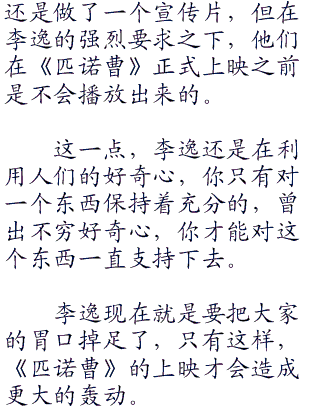 还是做了一个宣传片，但在
李逸的强烈要求之下，他们
在《匹诺曹》正式上映之前
是不会播放出来的。
这一点，李逸还是在利
用人们的好奇心，你只有对
一个东西保持着充分的，曾
出不穷好奇心，你才能对这
个东西一直支持下去。
李逸现在就是要把大家
的胃口掉足了，只有这样，
《匹诺曹》的上映才会造成
更大的轰动。